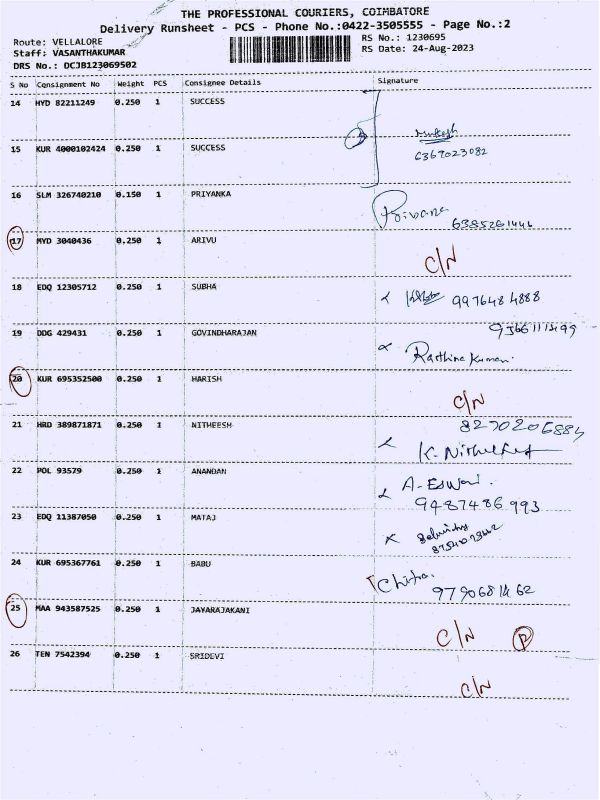 THE PROFESSIONAL COURIERS, COIMBATORE
Delivery Runsheet - PCS - Phone No.:0422-3505555 - Page No.:2
Route: VELLALORE RS No.: 1230695
Staff: VASANTHAKUMAR RS Date: 24-Aug-2023
DRS No.: DCJB123069502
S No Consignment No Weight PCS Consignee Details Signature
14 HYD 82211249 0.250 1 SUCCESS
15 KUR 4000102424 0.250 1 SUCCESS
6369023082
16 SLM 326740210 0.150 1 PRIYANKA
17 MYD 3040436 0.250 1 ARIVU
C/N
18 EDQ 12305712 0.250 1 SUBHA
9976484888
19 DDG 429431 0.250 1 GOVINDHARAJAN
Rathina Kumar.
20 KUR 695352500 0.250 1 HARISH
C/N
21 HRD 389871871 0.250 1 NITHEESH
8270206884
22 POL 93579 0.250 1 ANANDAN
A. Eswari.
9487486993
23 EDQ 11387050 0.250 1 MATAJ
24 KUR 695367761 0.250 1 BABU
Chitra.
9790681462
25 MAA 943587525 0.250 1 JAYARAJAKANI
C/N R
26 TEN 7542394 0.250 1 SRIDEVI
C/N